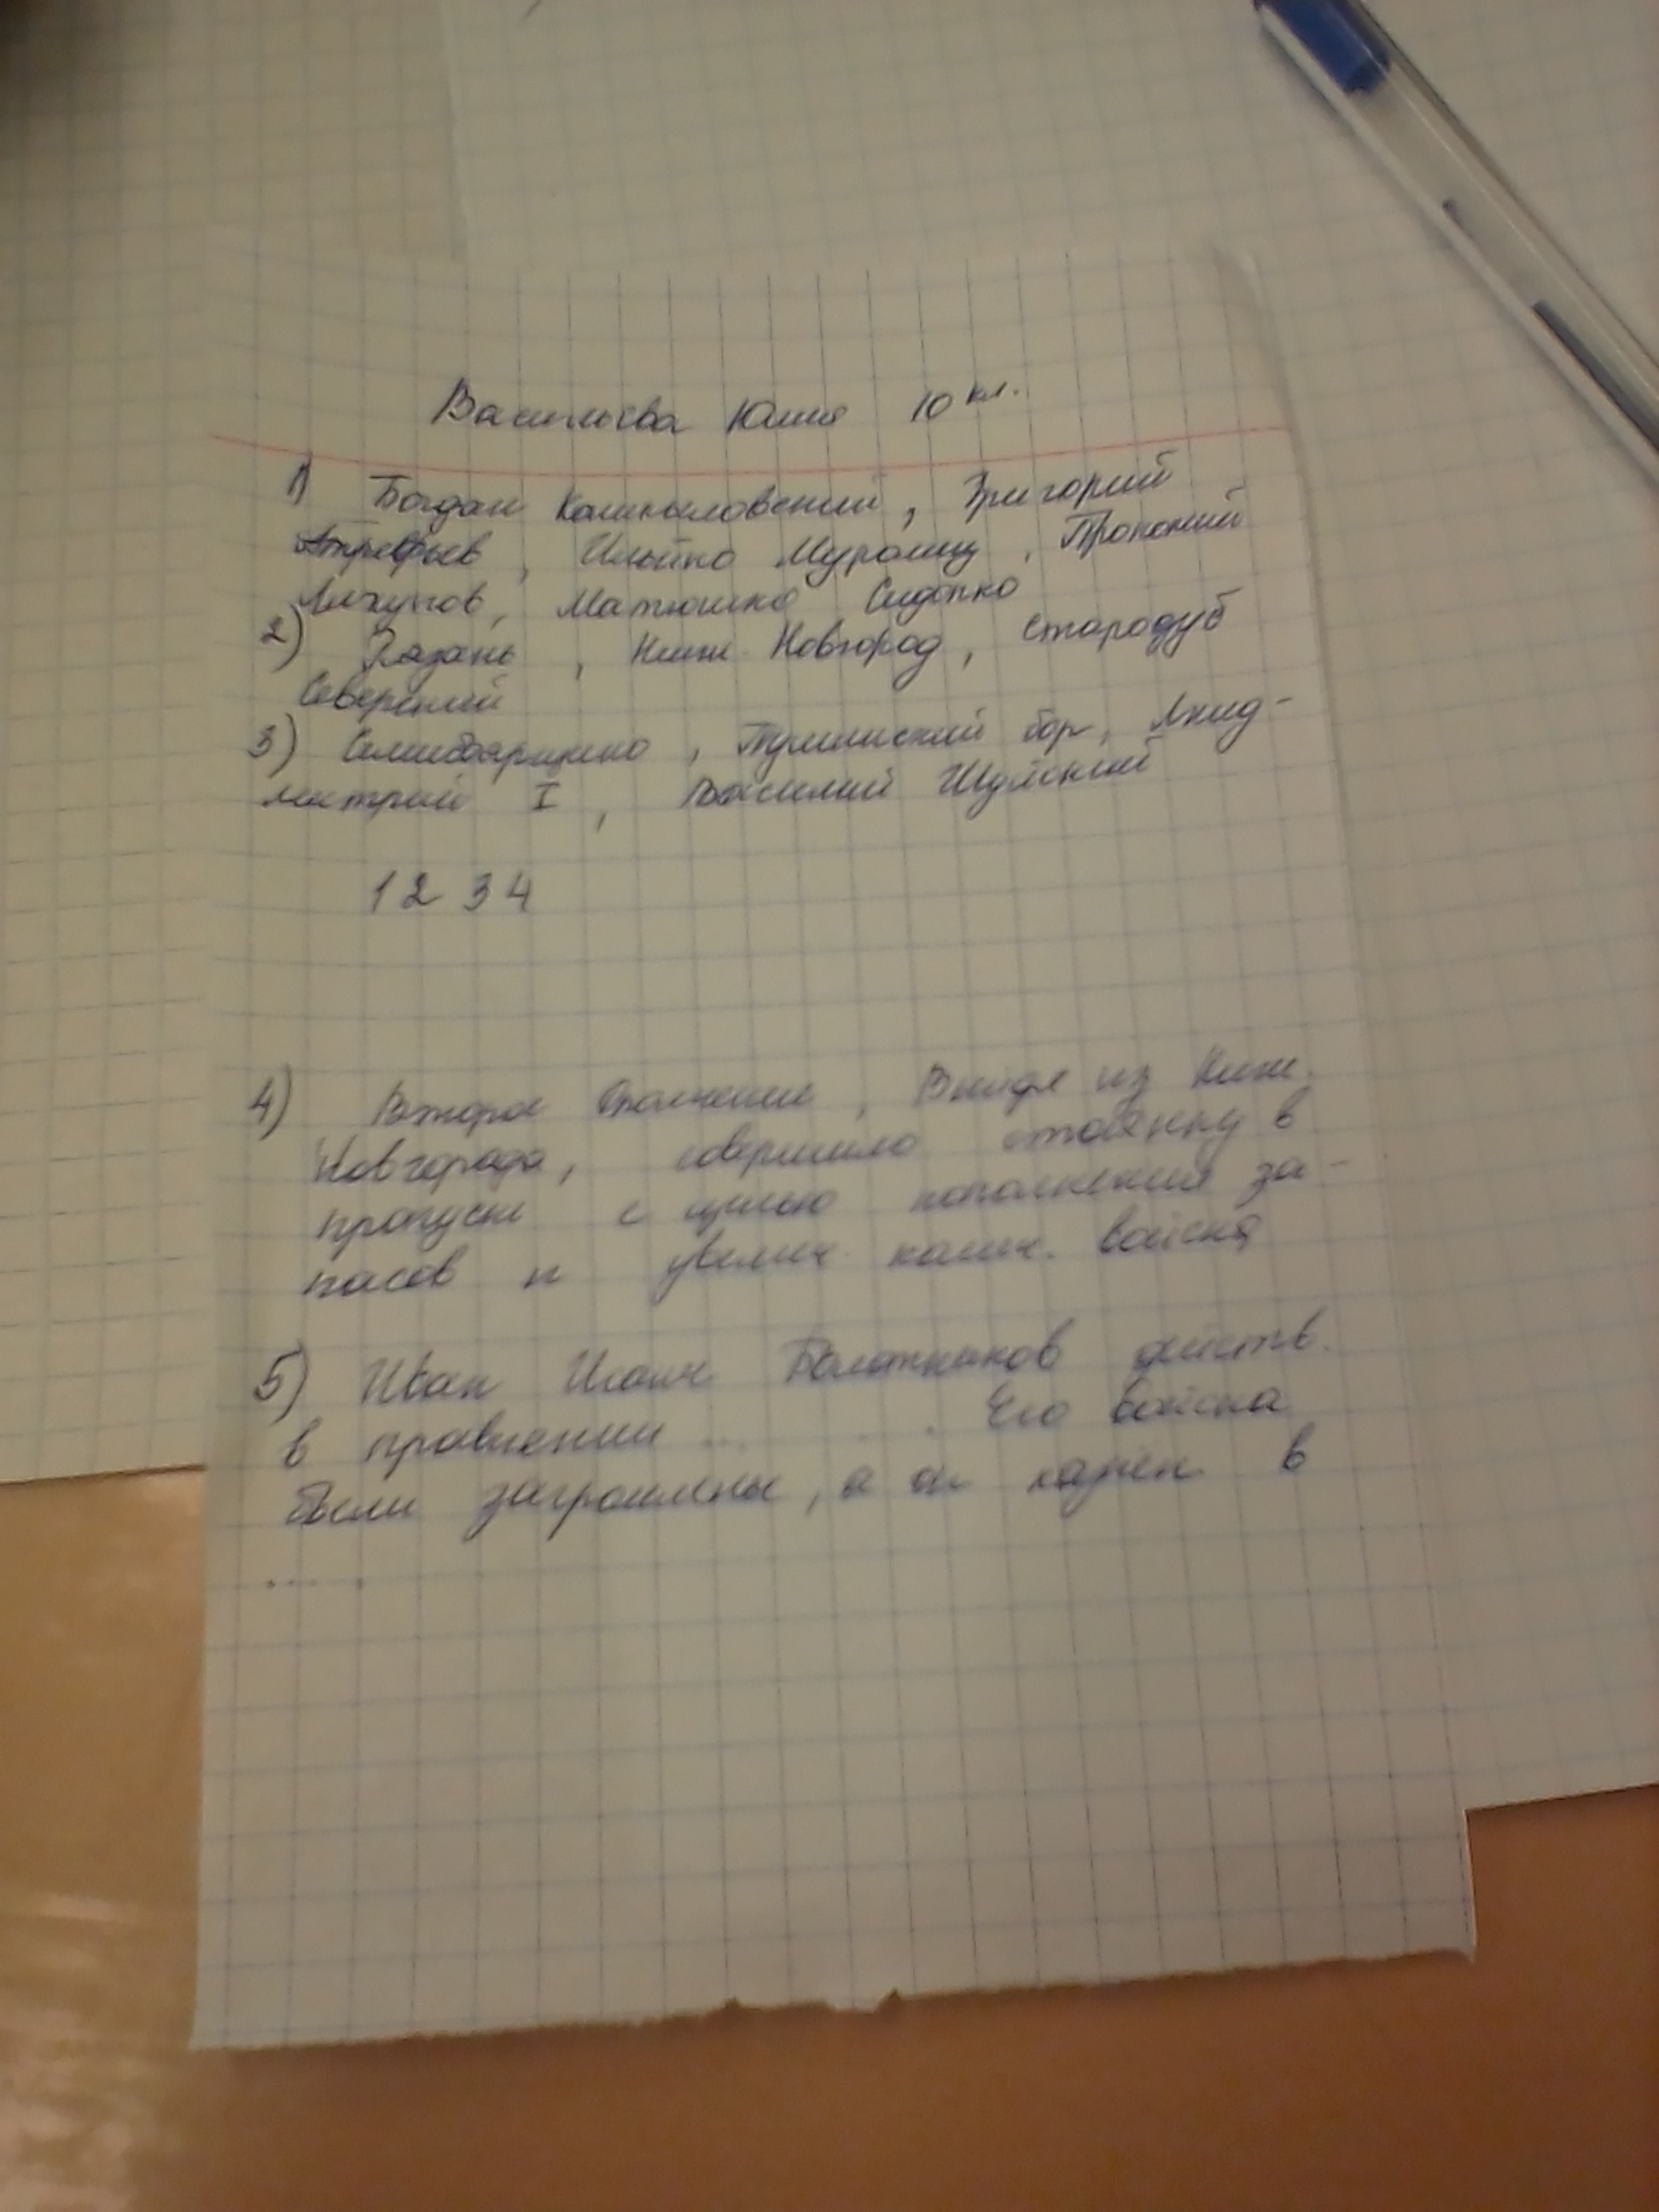 Васильева Юлия 10 кл.
1) Богдан Колтыловский, Григорий
Отрепьев, Илейко Муромец, Прокопий
Ляпунов, Матюшка
2) Казань, Ниж. Новгород, Стародуб
Северский
3) Семибоярщина, Тушинский вор, Лжед-
митрий I, Василий Шуйский
1 2 3 4
4) Второе Ополчение, Выйдя из Ниж.
Новгорода, совершило стоянку в
с целью пополнения за-
пасов и увелич. колич. войска
5) Иван Исаич Болотников действ.
в правлении ... . Его войска
были , а он казнен в
.... .